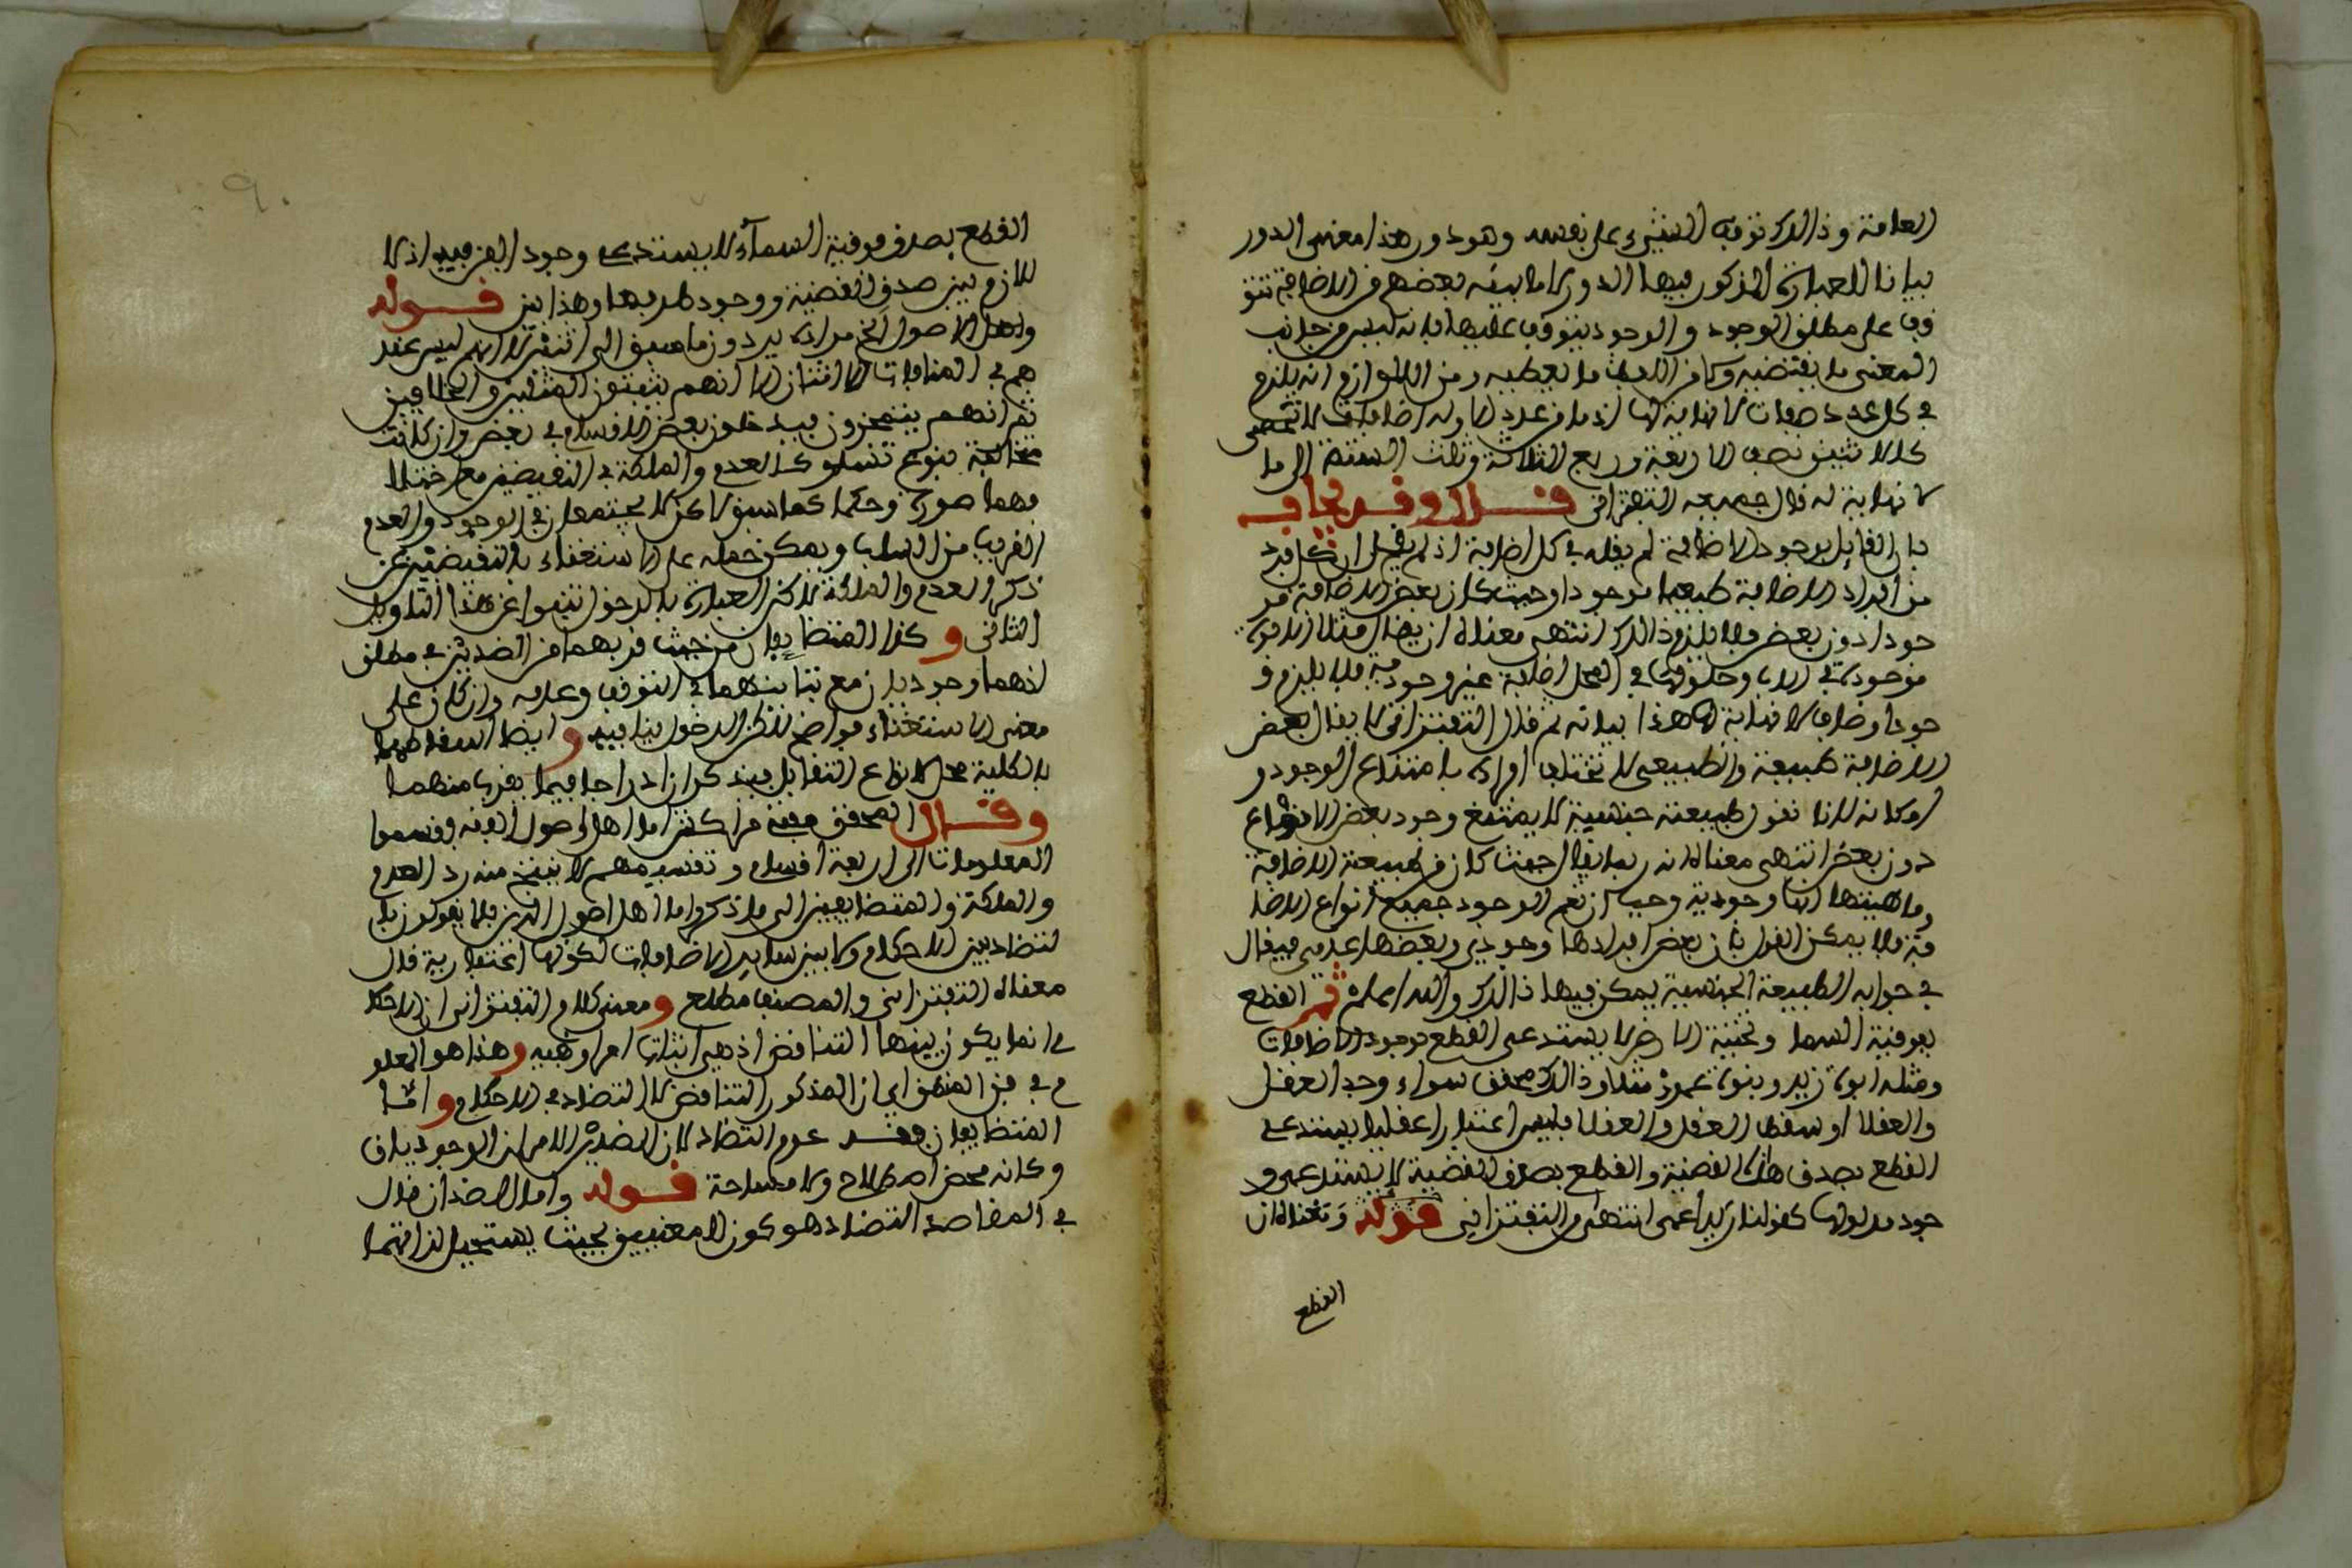 العامة وذالك توقف الشيء على نفسه وهو دور هذا معنى الدور
بيانا للعبارة المذكور فيها الدور كما بينه بعضهم من الاضافة تتو
قف على مطلق الوجود والوجود يتوقف عليها فانه ليس من جانب
المعنى ما يقتضيه ولا من اللفظ ما يعطيه ومن اللوازم انه يلزم
في كل عدد صفات لا نهاية لها اذ ما من عدد الا وله اضافات لا تحصى
كالاثنين نصف الاربعة وربع الثمانية وثلث الستة الى ما
لا نهاية له قال جميعه التفتزاني قال وقد يجاب
بان القايل بوجود الاضافة لم يقله في كل اضافة اذ لم يقل ان كل فرد
من افراد الاضافة طبيعها موجودا وحيث كان بعض الاضافة مو
جودا دون بعض فلا يلزم ذالك انتهى معناه ان يقال مثلا الابوة
موجودة في الاب وحلولها في المحل اضافة غير وجودية فلا يلزم و
جود اوصاف لا نهاية لها هذا بيانه ثم قال التفتزاني لا يقال بعض
الاضافة طبيعة والطبيعي لا تختلف افراده بامتناع الوجود و
امكانه لانا نقول طبيعته جنسية لا يمتنع وجود بعض الانواع
دون بعض انتهى معناه انه ربما يقال حيث كان من طبيعة الاضافة
وماهيتها انها وجودية وجب ان تعم الوجود جميع انواع الاضا
فة فلا يمكن القول بان بعض افرادها وجودي وبعضها عدمي فيقال
في جوابه الطبيعة الجنسية يمكن فيها ذالك والله اعلم ثم القطع
بفوقية السما وتحتية الارض لا يستدعى القطع بوجود الاضافات
ومثله ابوة زيد وبنوة عمرو مثلا وذالك محقق سواء وجد العقل
والعقلا او سقط العقل والعقلا فليس اعتبارا عقليا يستدعي
القطع بصدق هذه القضية والقطع بصدق القضية لا يستدعى و
جود مدلولها كقولنا زيد اعمى انتهى من التفتزاني قوله ومعناه ان
القطع
القطع بصدق فوقية السماء لا يستدعي وجود الفوقية اذ لا
تلازم بين صدق القضية ووجود طرفيها وهذا بين قوله
واهل الاصول الخ مراده يردون ما سبق الى اثنين لانهم ليس عند
هم في المنافات الا اثنان الا انهم يثبتون المثلين والخلافين
ثم انهم ينحزون فيدخلون بعض الاقسام في بعض وان كانت
مخالفة بنوع تساو كالعدم والملكة في النقيضين مع اختلا
فهما صورة وحكما كما سبق لا كن لا يجتمعان في الوجود والعدم
القريب من السلب ويمكن حمله على الاستغناء بالنقيضين عن
ذكر العدم والملكة لاكن العبارة بالدخول تنبوا عن هذا التاويل
الثاني وكذا المتضايفان من حيث قربهما من الضدين في مطلق
انهما وجوديان مع تباينهما في التوقف وعدمه وان كان على
معنى الاستغناء فواضح لاكن الدخول ينافيه وايضا اسقاطهما
بالكلية محل لانواع التقابل فيذكران ادراجا فيما يقرب منهما
وقال المحقق فقنه ما كثر اما اهل اصول الفقه وقسموا
المعلومات الى اربعة اقسام وتقسيمهم لا ينتج منه رد العدم
والملكة والمتضايفين الى ما ذكروا اما اهل اصول الدين فلا يقولون بان
لتضاد بين الاحكام ولا بين ساير الاضافات لكونها اعتبارية قال
معناه التفتزاني والمصنف مطلع ومعنى كلام التفتزاني ان الاحكا
م انما يكون بينها التناقض اذ هي اثبات امر او نفيه وهذا هو المعلو
م في فن المنطق اي ان المذكور التناقض لا التضاد في الاحكام واما
المتضايفان فقد عدم التضاد لان الضدين الامران الوجوديان
وكانه محض اصطلاح ولا مشاحة قوله واما الضدان قال
في المقاصد التضاد هو كون المعنيين بحيث يستحيل لذاتهما